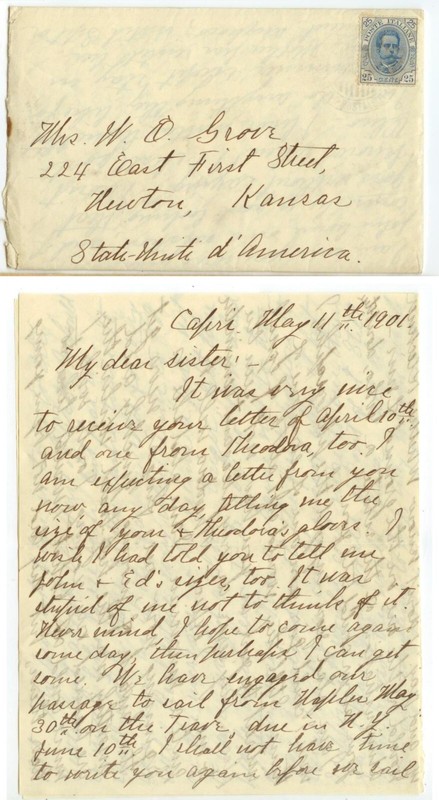 POSTE ITALIANE
25 25
Mrs. W. O. Grove
224 East First Street,
Newton, Kansas
State-Unite d'America.
Capri. May 11th 1901.
My dear sister:-
It was very nice
to receive your letter of April 10th
and one from Theodora, too. I
am expecting a letter from you
now any day, telling me the
size of your & Theodora's gloves. I
wish I had told you to tell me
John & Ed's sizes, too. It was
stupid of me not to think of it.
Never mind, I hope to come again
some day, then perhaps I can get
some. We have engaged our
passage to sail from Naples May
30th on the Trave, due in N.Y.
June 10th. I shall not have time
to write you again before we sail